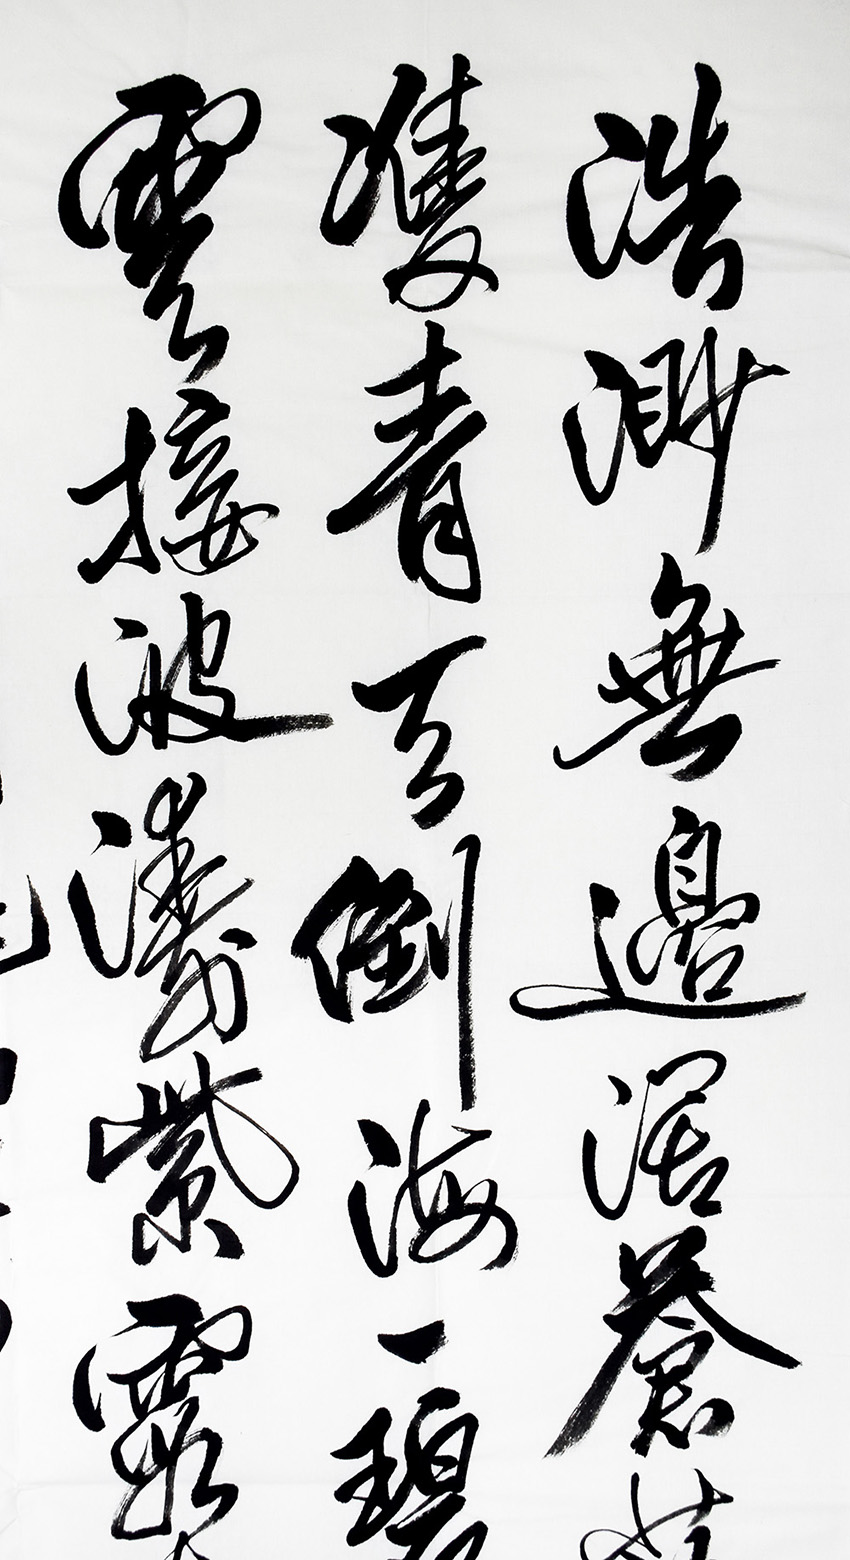 浩渺無邊蒼
雙青天倒海一碧
雲接波濤紫